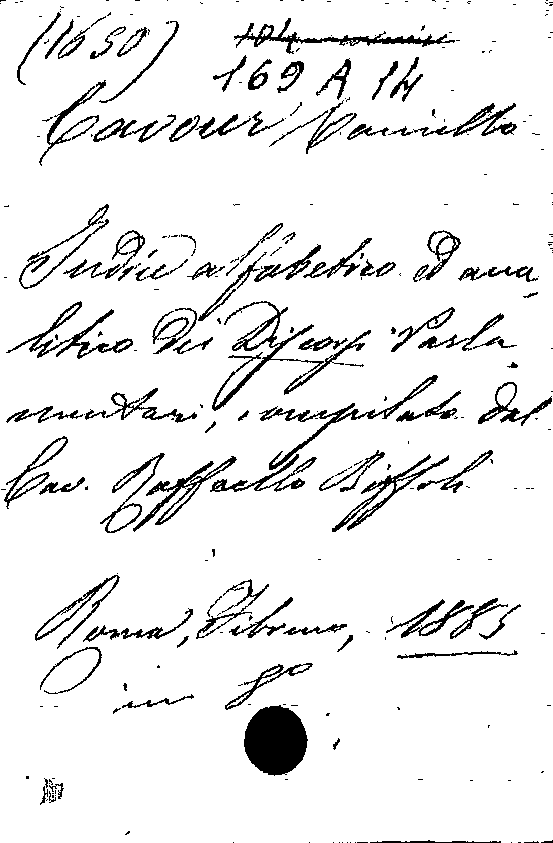 (1650)
169 A 14
Cavour Camillo
Indice alfabetico ed ana-
litico dei Discorsi Parla
mentari, compilato dal
Cav. Raffaello Biffoli
Roma, Tibreno, 1885
in 8º